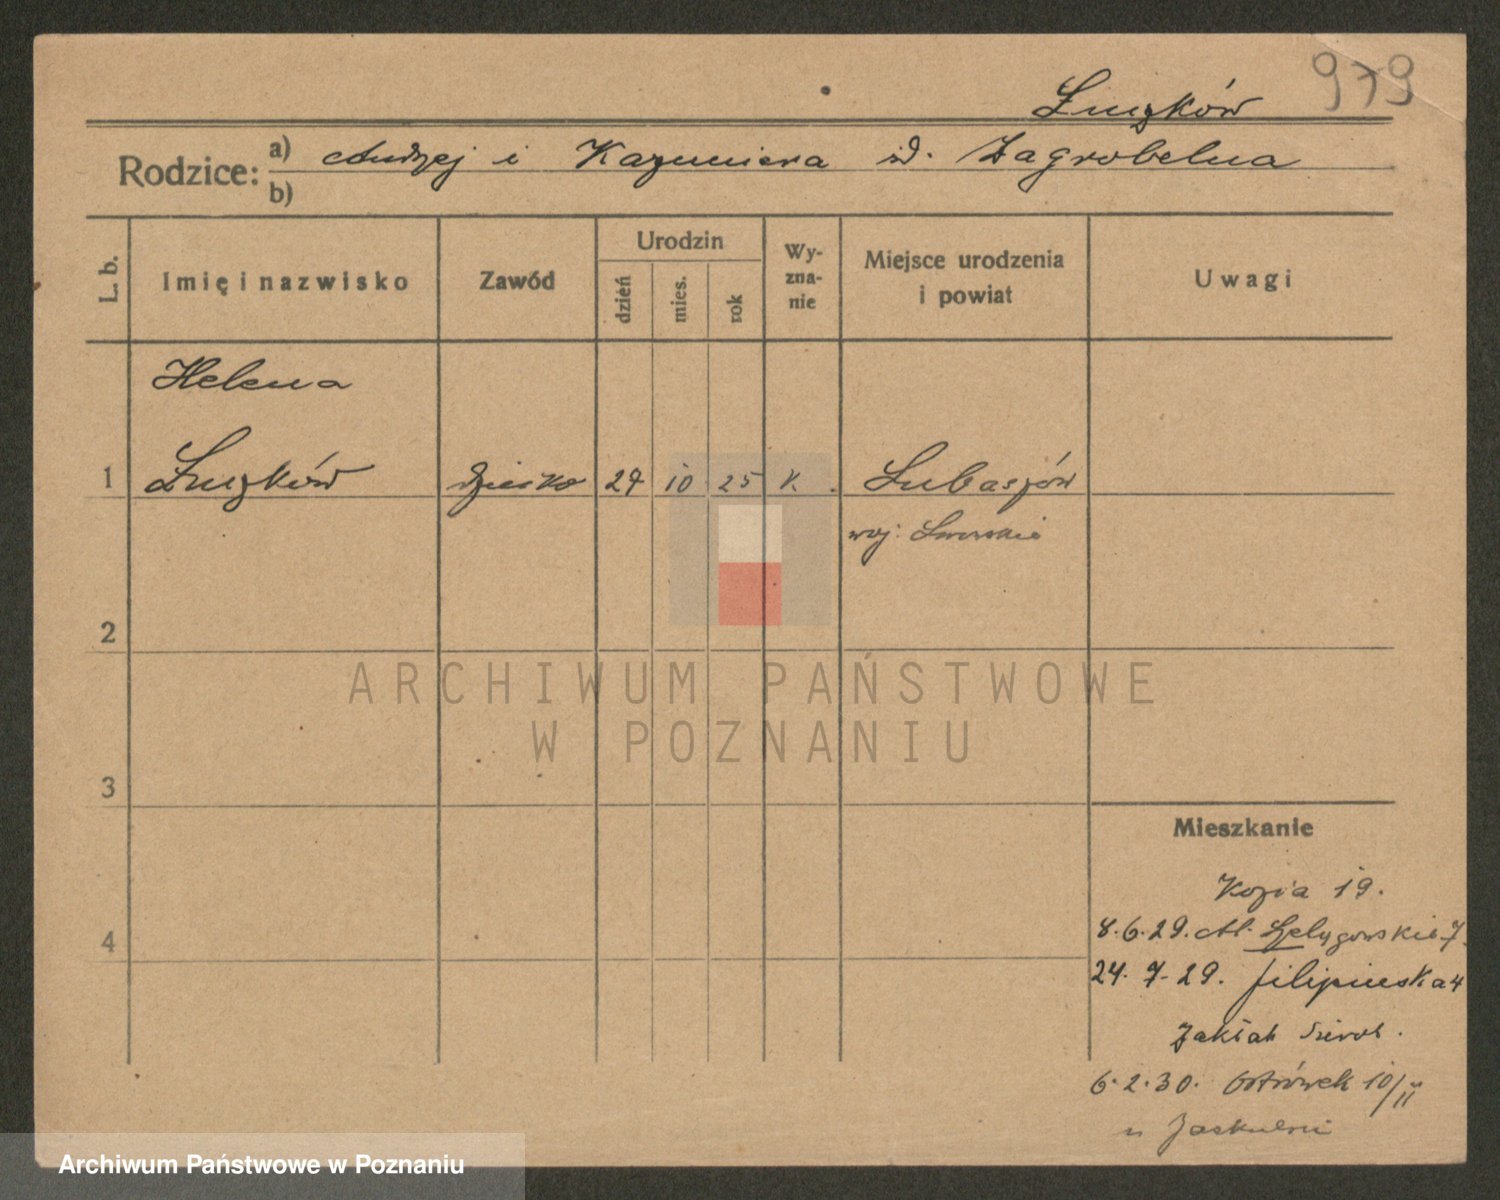 979
Łuzków
Rodzice:
a) Andrzej i Kazimiera zd. Zagrobelna
b)
L. b.
Imię i nazwisko
Zawód
Urodzin
dzień
mies.
rok
Wy-
zna-
nie
Miejsce urodzenia
i powiat
Uwagi
Helena
1 Łuzków dziecko 27 10 25 K. Lubaszów
woj. Lwowskie
2
3
4
Mieszkanie
Kozia 19.
8.6.29. Al. Szelągowskie 7
24.7.29. Filipińska 4
Zakład Sierot.
6.2.30. Ostrówek 10/II
u
ARCHIWUM PAŃSTWOWE
W POZNANIU
Archiwum Państwowe w Poznaniu